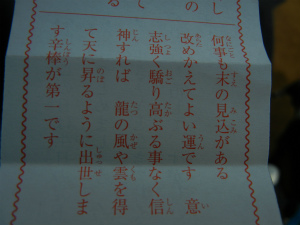 何事も末の見込がある
改めかえてよい運です　意
志強く驕り高ぶる事なく信
神すれば　龍の風や雲を得
て天に昇るように出世しま
す辛棒が第一です